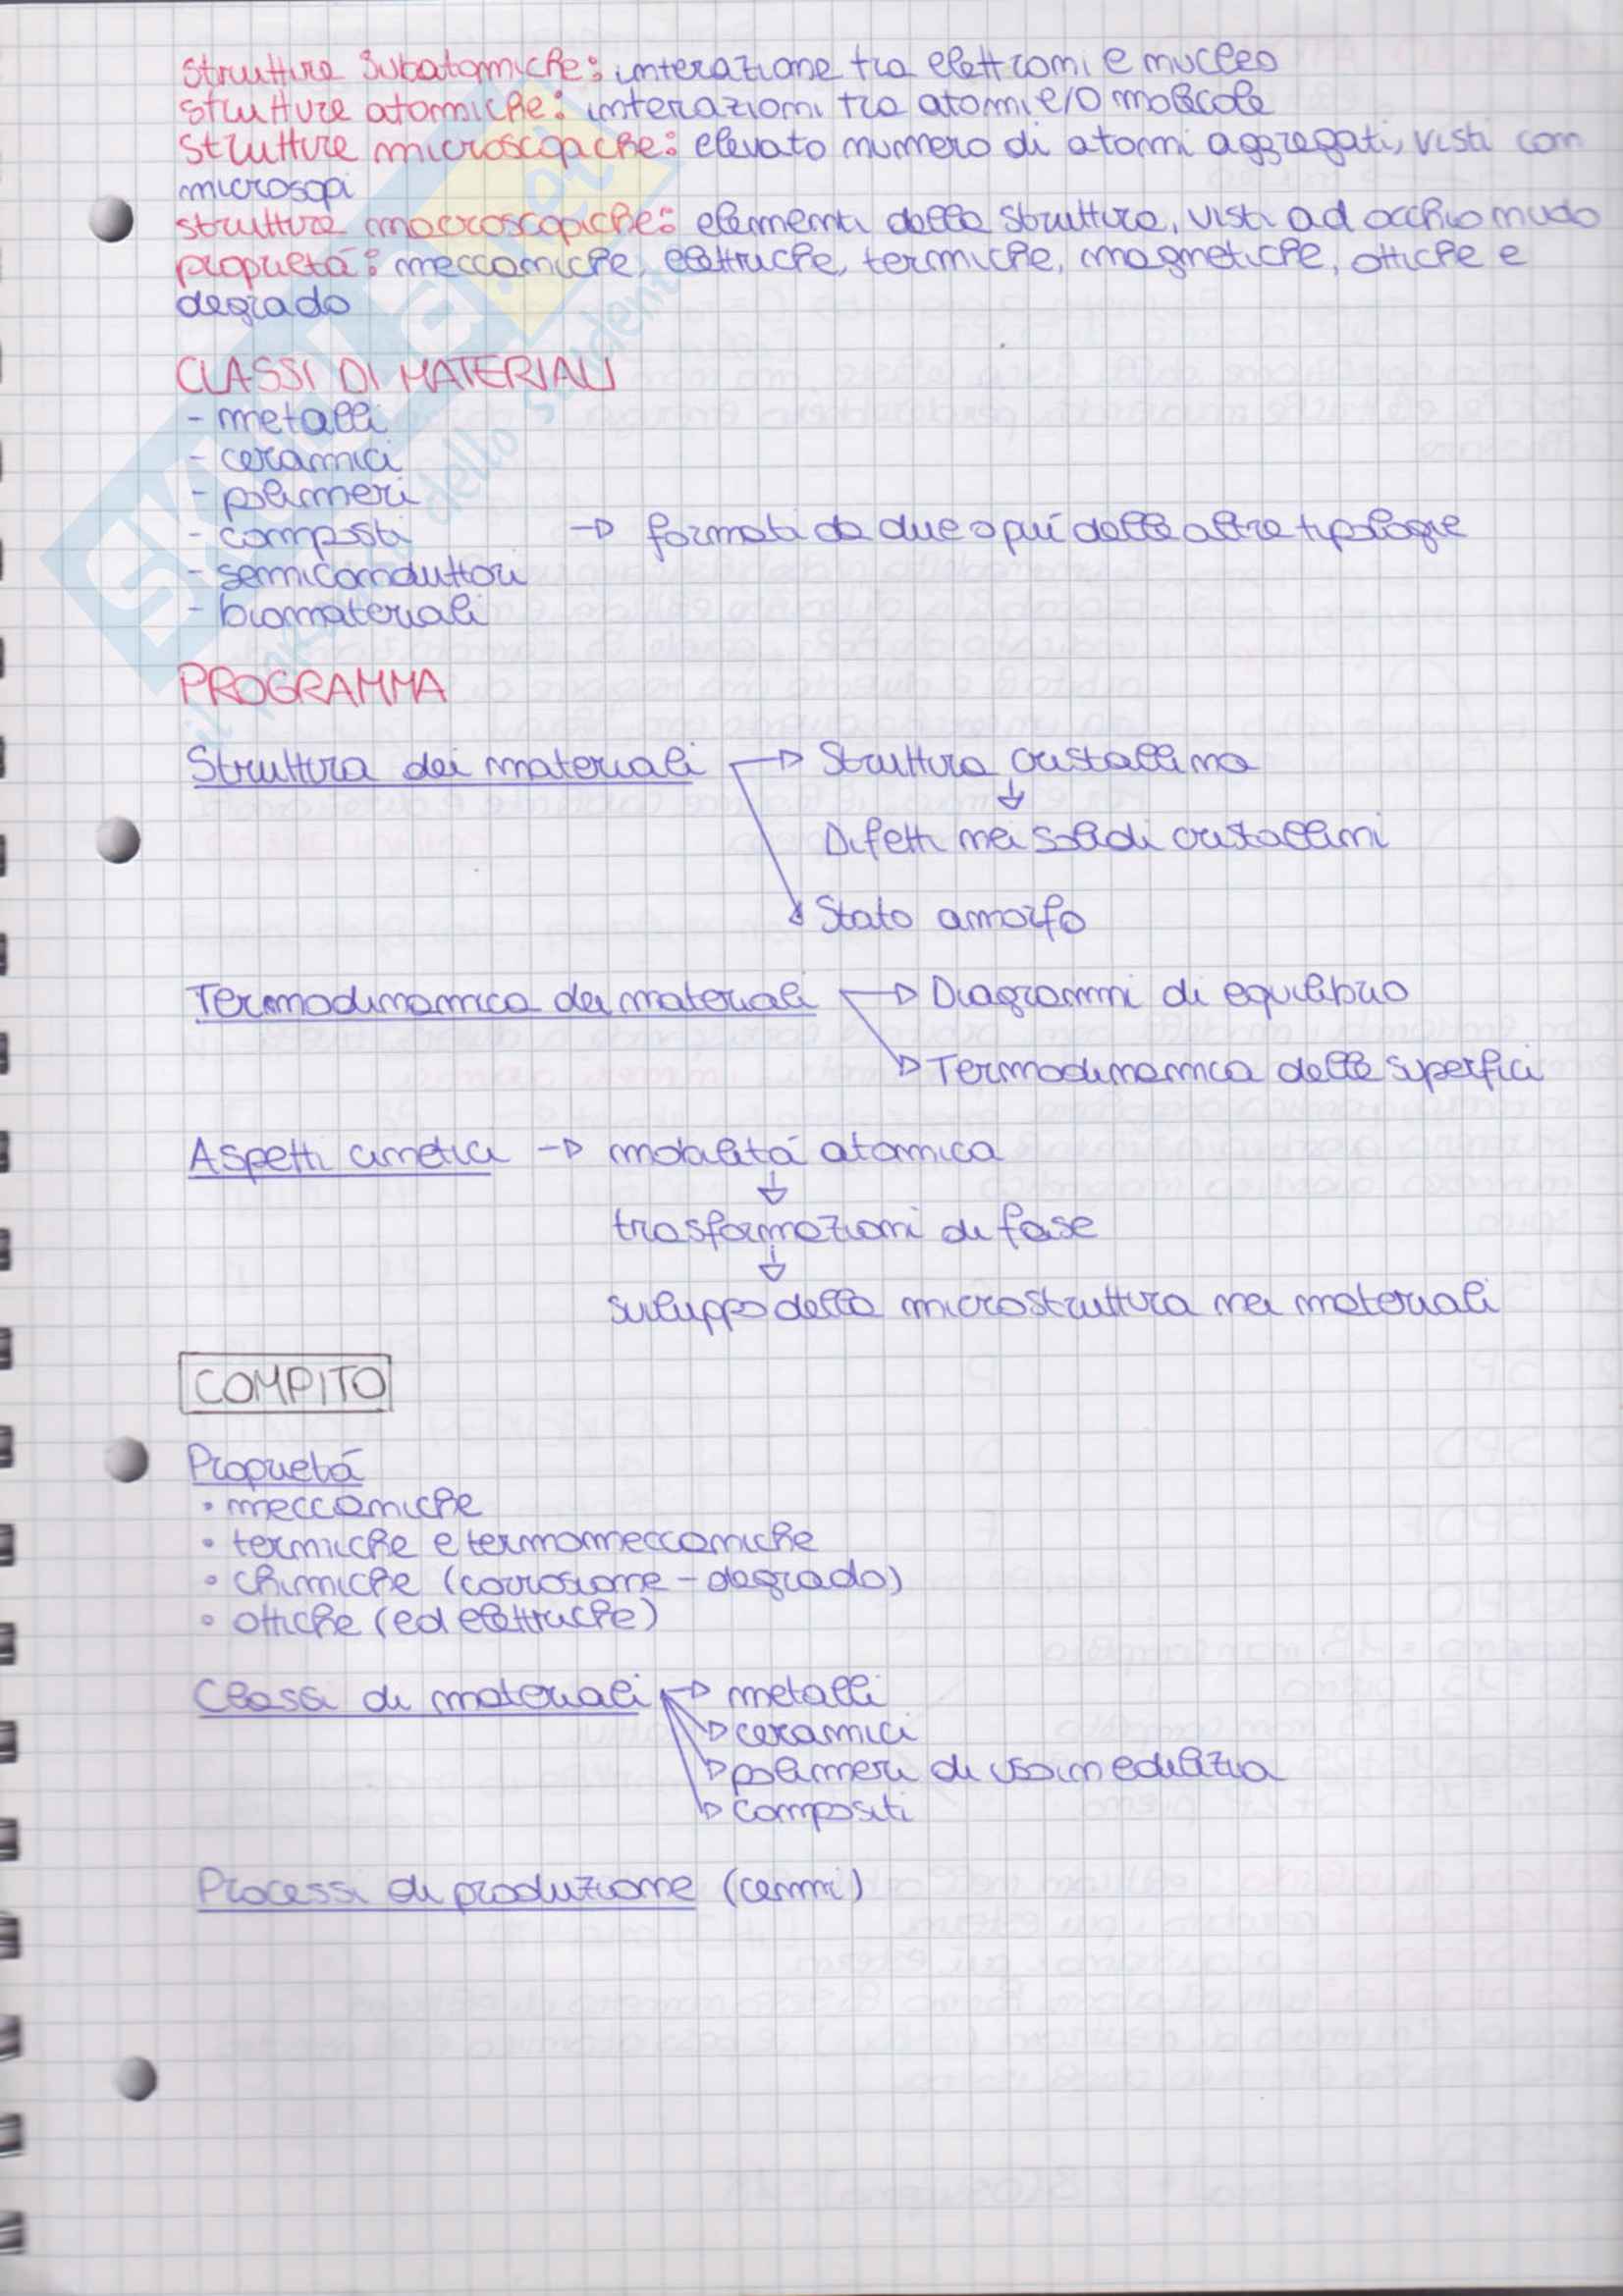 strutture subatomiche: interazione tra elettroni e nucleo
strutture atomiche: interazioni tra atomi e/o molecole
strutture microscopiche: elevato numero di atomi aggregati, visti con
microsopi
strutture macroscopiche: elementi della struttura, visti ad occhio nudo
proprietá: meccaniche, elettriche, termiche, magnetiche, ottiche e
degrado
CLASSI DI MATERIALI
- metalli
- ceramici
- polimeri
- composti → formati da due o piú delle altre tipologie
- semiconduttori
- biomateriali
PROGRAMMA
Struttura dei materiali → Struttura cristallina
↓
Difetti nei solidi cristallini
→ Stato amorfo
Termodinamica dei materiali → Diagrammi di equilibrio
→ Termodinamica delle superfici
Aspetti cinetici → mobilitá atomica
↓
trasformazioni di fase
↓
sviluppo della microstruttura nei materiali
COMPITO
Proprietá
• meccaniche
• termiche e termomeccaniche
• chimiche (corrosione - degrado)
• ottiche (ed elettriche)
Classi di materiali → metalli
→ ceramici
→ polimeri di uso in edilizia
→ compositi
Processi di produzione (cenni)